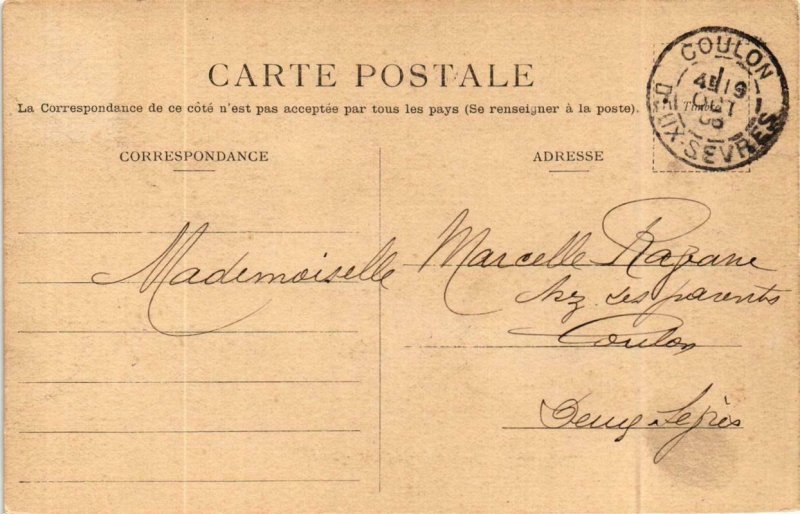 CARTE POSTALE
La Correspondance de ce côté n'est pas acceptée par tous les pays (Se renseigner à la poste).
COULON
19
OCT
DEUX-SEVRES
CORRESPONDANCE
ADRESSE
Mademoiselle Marcelle
chez ses parents
Coulon
Deux Sèvres